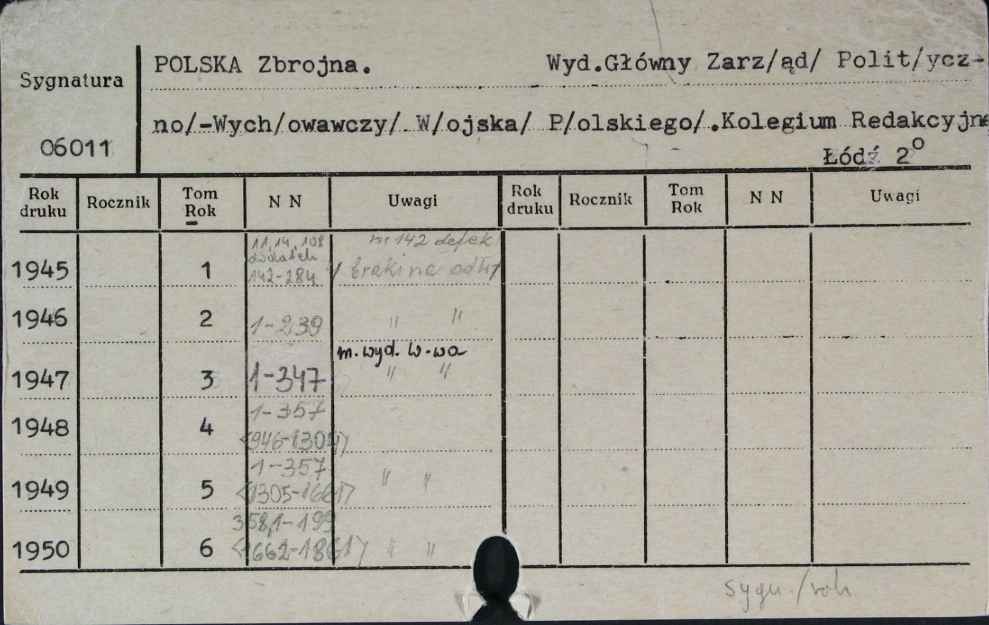 Sygnatura
06011
POLSKA Zbrojna. Wyd.Główny Zarz/ąd/ Polit/ycz-
no/-Wych/owawczy/ W/ojska/ P/olskiego/.Kolegium Redakcyjne
Łódź 2o
Rok druku Rocznik Tom Rok N N Uwagi Rok druku Rocznik Tom Rok N N Uwagi
11, 14, 108 nr 142 defek
dodatek
1945 1 142-284 braki na odwr
1946 2 1-239 " "
m. wyd. W-wa
1947 3 1-347 " "
1-357
1948 4 <946-1304>
1-357
1949 5 <1305-1661> " "
358,1-199
1950 6 <1662-1861> " "
sygn./rok